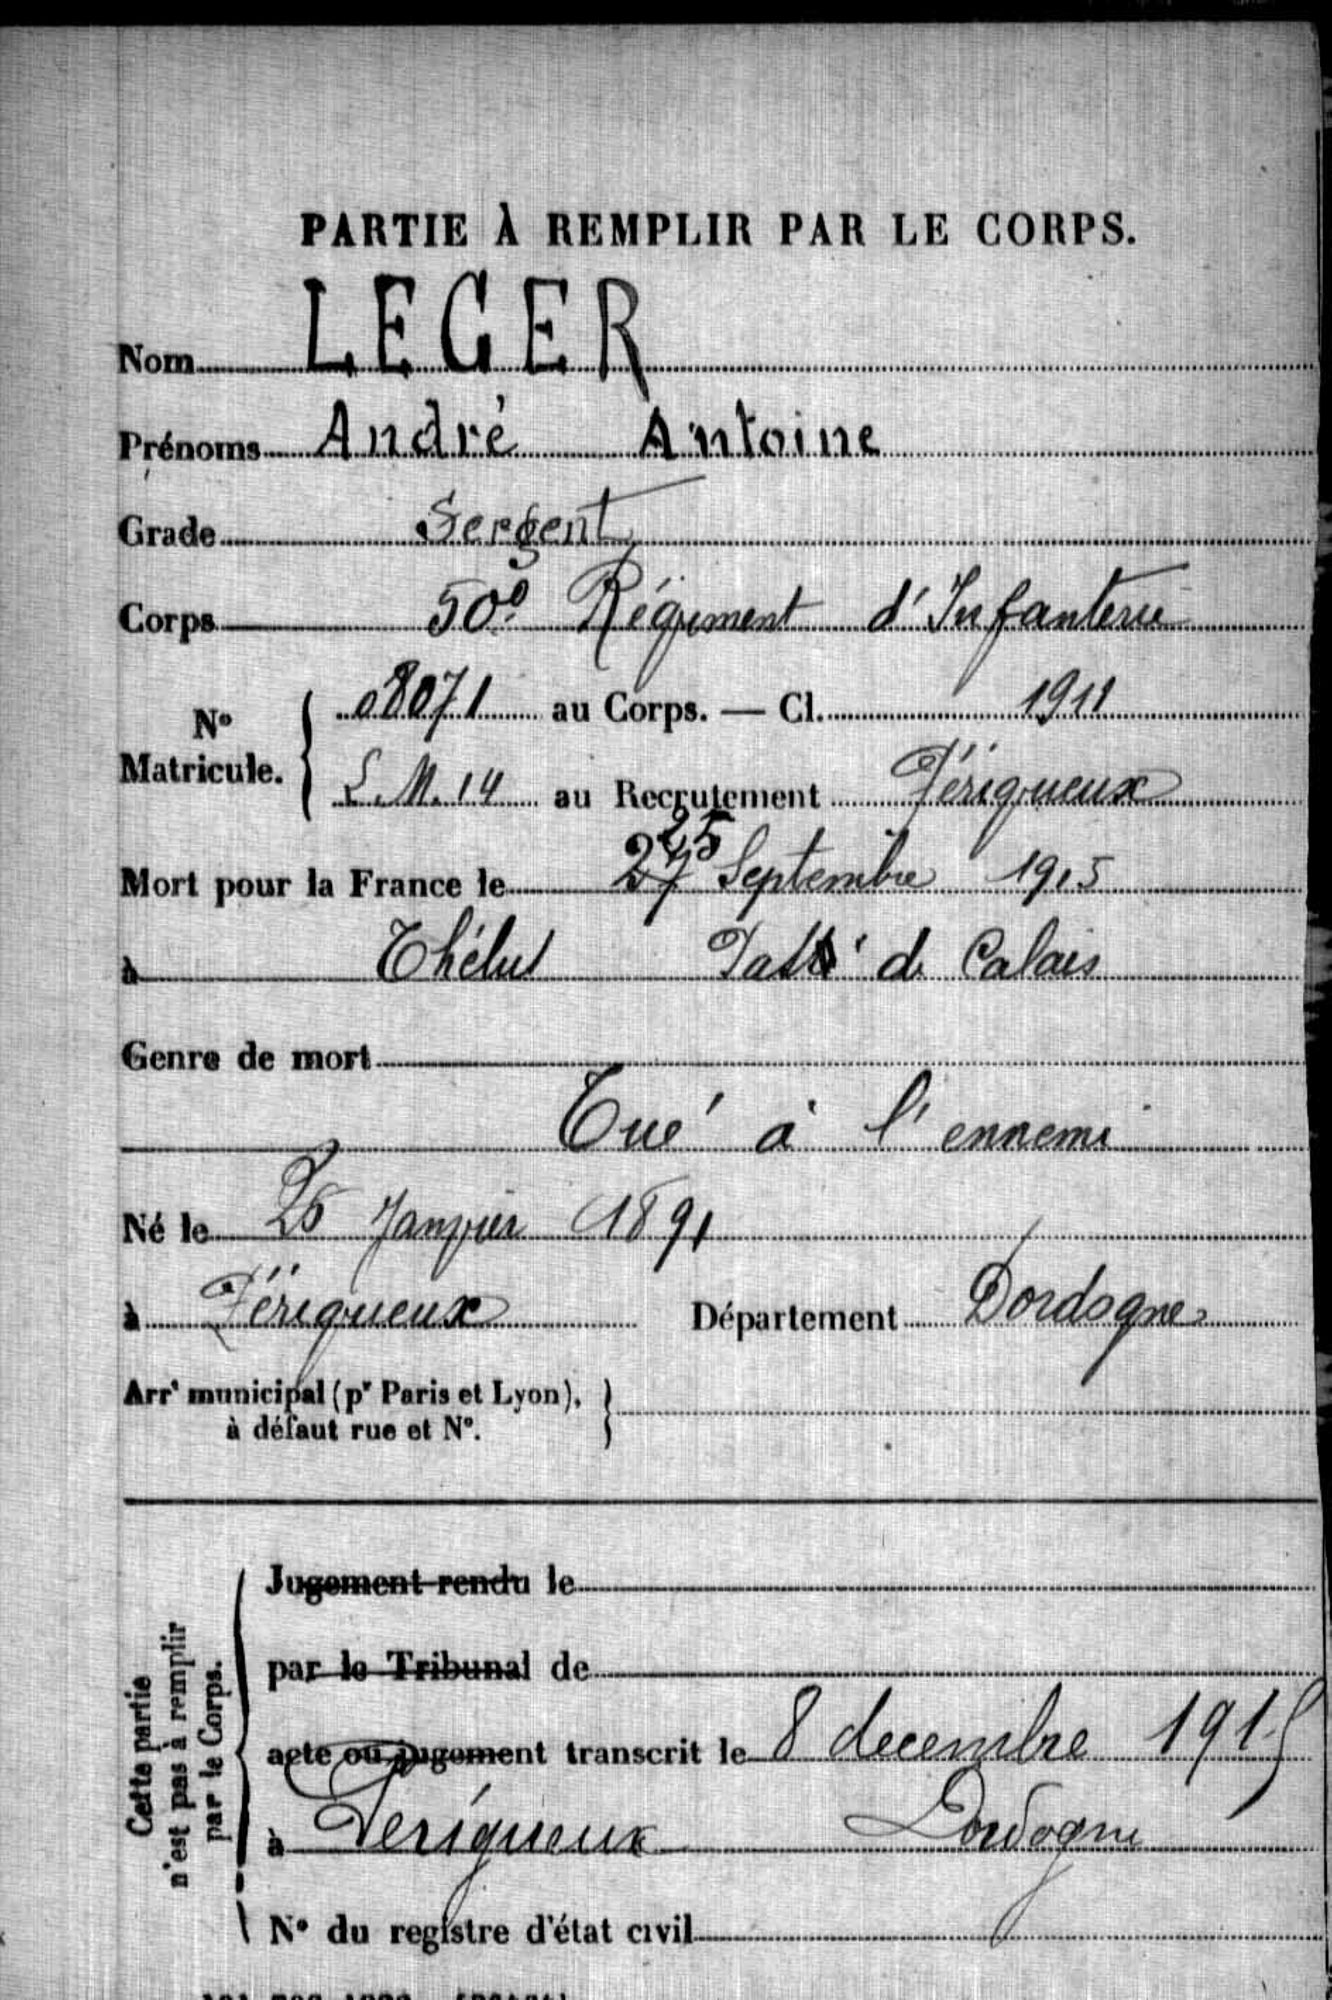 PARTIE À REMPLIR PAR LE CORPS.
Nom LEGER
Prénoms André Antoine
Grade Sergent
Corps 50e Régiment d'Infanterie
N° Matricule. 08071 au Corps. — Cl. 1911
L.M.14 au Recrutement Périgueux
25
Mort pour la France le 27 Septembre 1915
à Thélus Pas de Calais
Genre de mort
Tué à l'ennemi
Né le 25 Janvier 1891
à Périgueux Département Dordogne
Arrt municipal (pr Paris et Lyon),
à défaut rue et N°.
Cette partie
n'est pas à remplir
par le Corps.
Jugement rendu le
par le Tribunal de
acte ou jugement transcrit le 8 decembre 1915
à Perigueux Dordogne
N° du registre d'état civil